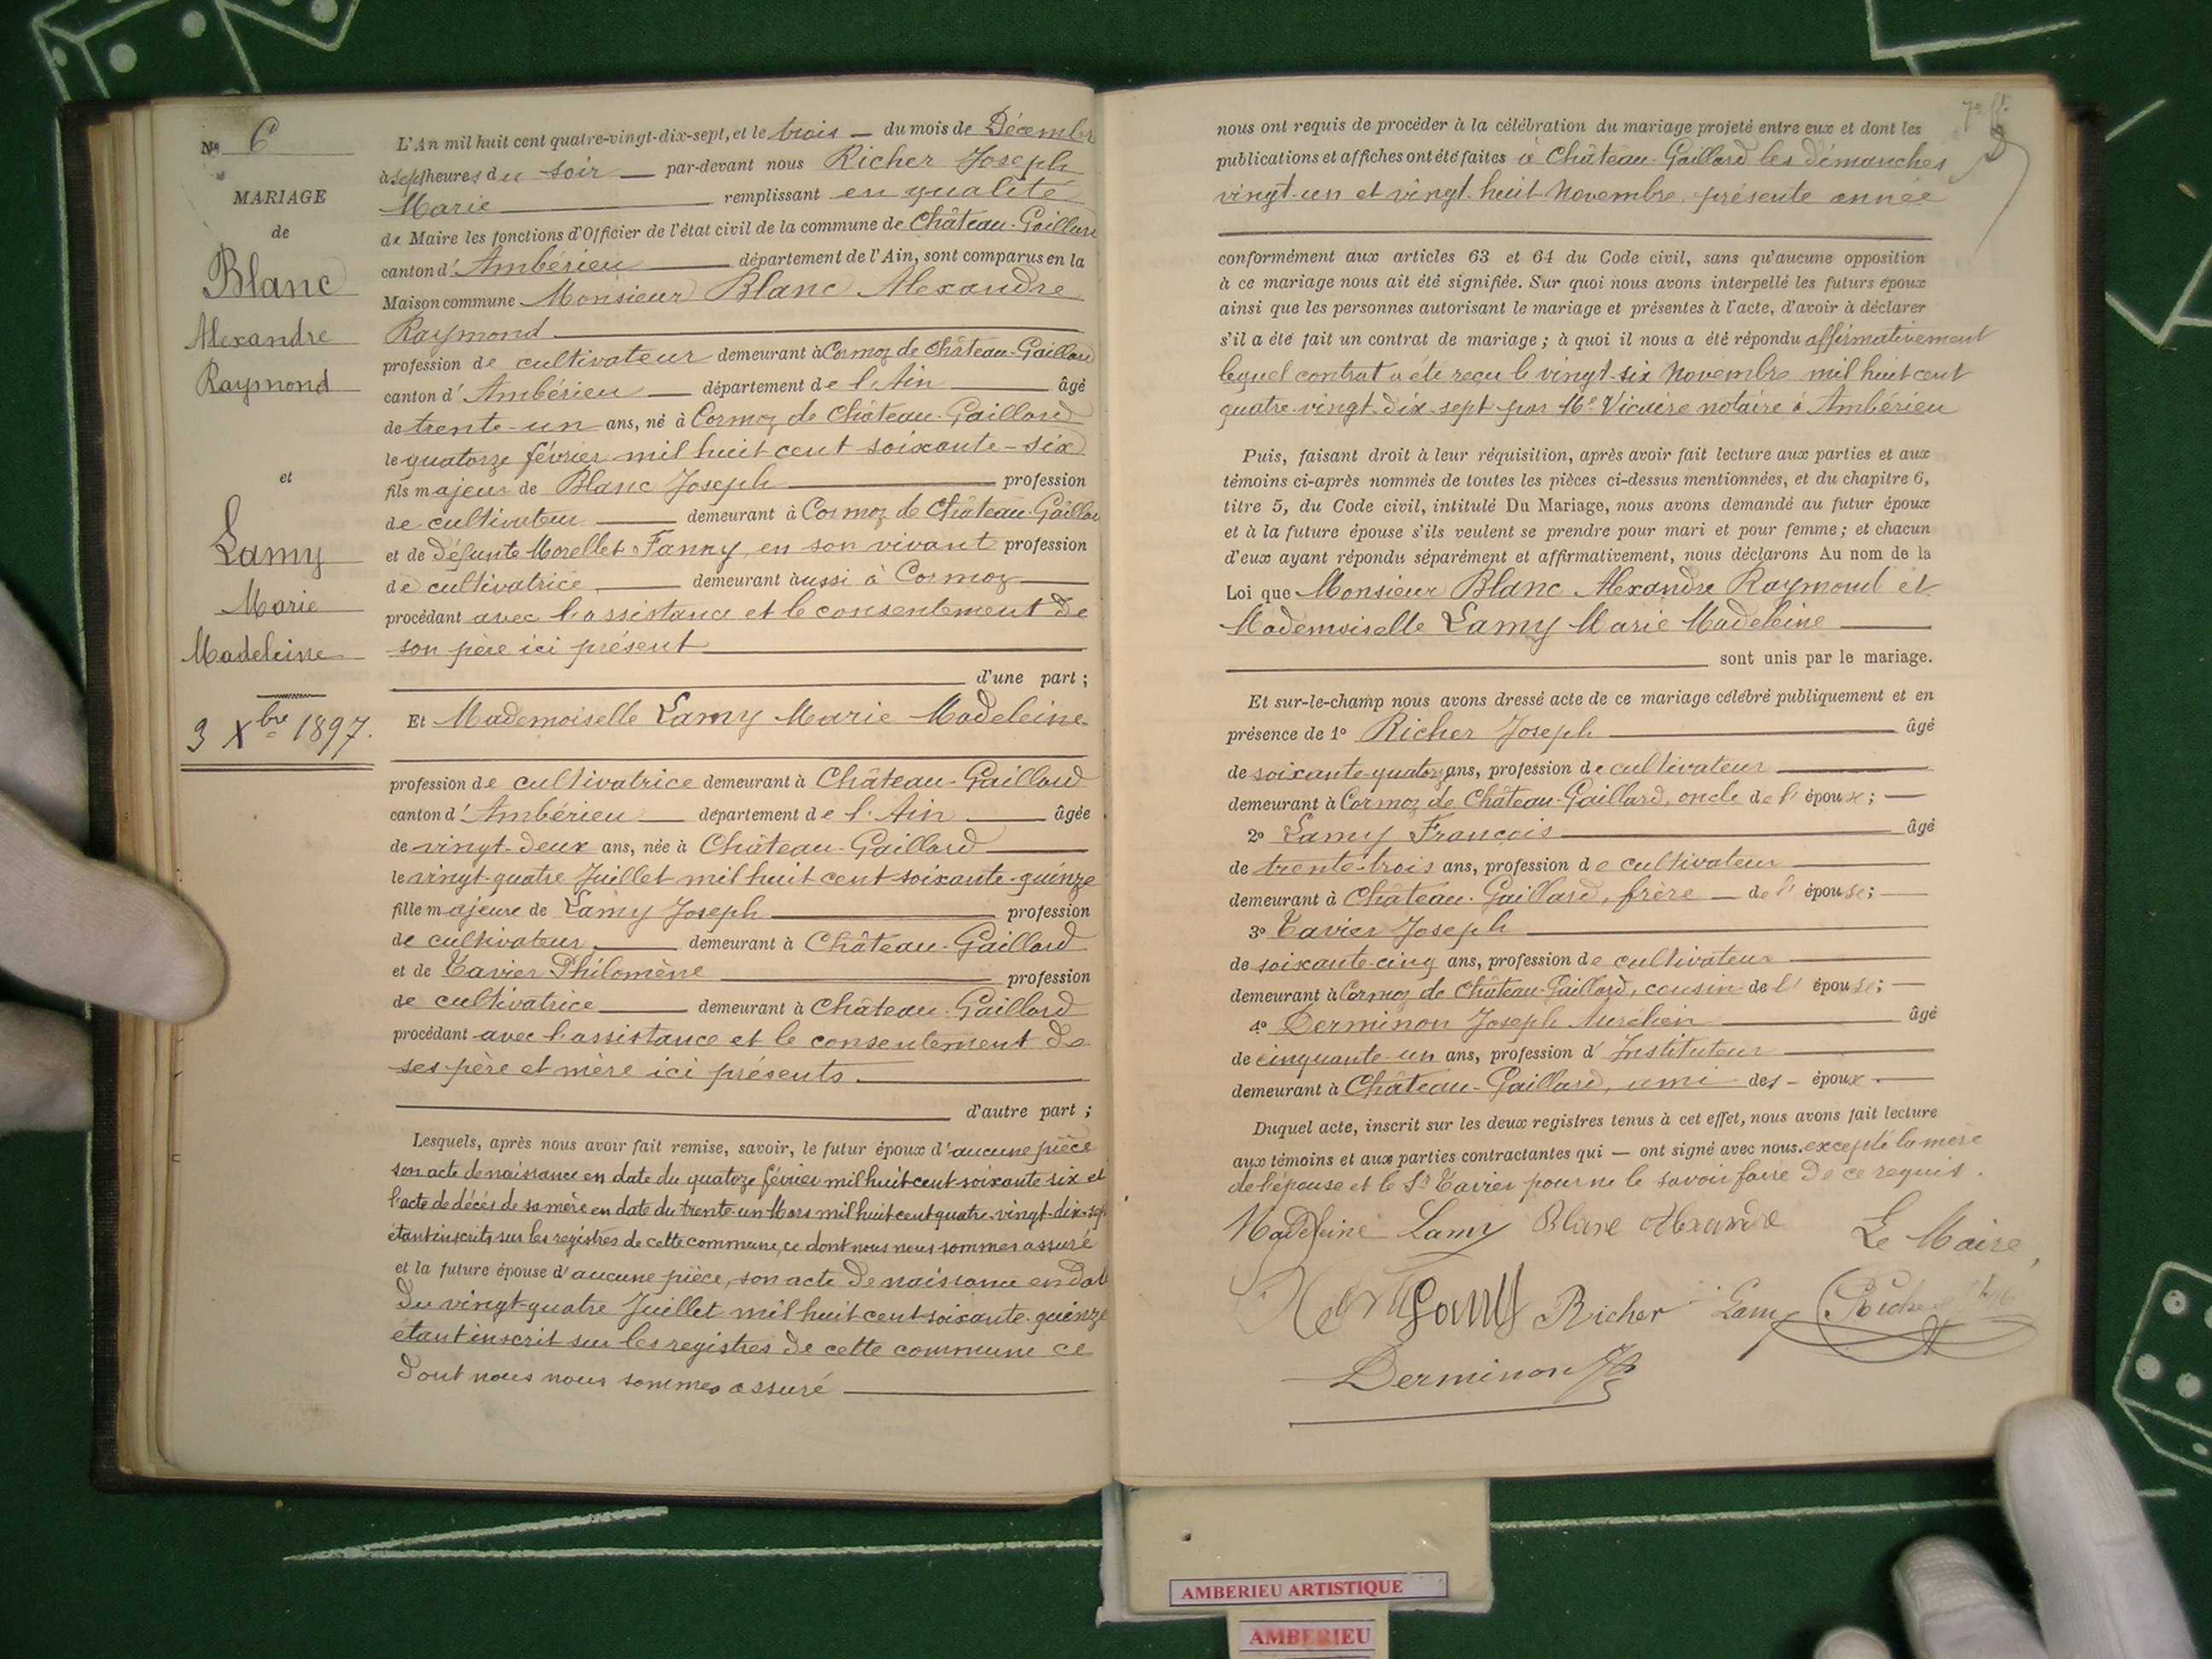 Nº 6
MARIAGE
de
Blanc
Alexandre
Raymond
et
Lamy
Marie
Madeleine
3 Xbre 1897.
L'An mil huit cent quatre-vingt-dix-sept, et le trois du mois de Décembre
à sept heures du soir par-devant nous Richer Joseph
Marie remplissant en qualité
de Maire les fonctions d'Officier de l'état civil de la commune de Château-Gaillard
canton d'Ambérieu département de l'Ain, sont comparus en la
Maison commune Monsieur Blanc Alexandre
Raymond
profession de cultivateur demeurant à Cormoz de Château-Gaillard
canton d'Ambérieu département de l'Ain âgé
de trente-un ans, né à Cormoz de Château-Gaillard
le quatorze février mil huit cent soixante-six
fils majeur de Blanc Joseph profession
de cultivateur demeurant à Cormoz de Château-Gaillard
et de défunte Morellet Fanny, en son vivant profession
de cultivatrice, demeurant aussi à Cormoz
procédant avec l'assistance et le consentement de
son père ici présent
d'une part ;
Et Mademoiselle Lamy Marie Madeleine
profession de cultivatrice demeurant à Château-Gaillard
canton d'Ambérieu département de l'Ain âgée
de vingt-deux ans, née à Château-Gaillard
le vingt-quatre Juillet mil huit cent soixante-quinze
fille majeure de Lamy Joseph profession
de cultivateur, demeurant à Château-Gaillard
et de Tavier Philomène profession
de cultivatrice demeurant à Château-Gaillard
procédant avec l'assistance et le consentement de
ses père et mère ici présents.
d'autre part ;
Lesquels, après nous avoir fait remise, savoir, le futur époux d'aucune pièce
son acte de naissance en date du quatorze février mil huit cent soixante six et
l'acte de décès de sa mère en date du trente-un Mars mil huit cent quatre-vingt-dix-sept
étant inscrits sur les registres de cette commune, ce dont nous nous sommes assuré
et la future épouse d'aucune pièce, son acte de naissance en date
du vingt-quatre Juillet mil huit cent soixante-quinze
étant inscrit sur les registres de cette commune ce
dont nous nous sommes assuré
nous ont requis de procéder à la célébration du mariage projeté entre eux et dont les
publications et affiches ont été faites à Château-Gaillard les dimanches
vingt-un et vingt-huit Novembre, présente année
conformément aux articles 63 et 64 du Code civil, sans qu'aucune opposition
à ce mariage nous ait été signifiée. Sur quoi nous avons interpellé les futurs époux
ainsi que les personnes autorisant le mariage et présentes à l'acte, d'avoir à déclarer
s'il a été fait un contrat de mariage ; à quoi il nous a été répondu affirmativement
lequel contrat a été reçu le vingt-six Novembre mil huit cent
quatre-vingt-dix-sept par Me Vicaire notaire à Ambérieu
Puis, faisant droit à leur réquisition, après avoir fait lecture aux parties et aux
témoins ci-après nommés de toutes les pièces ci-dessus mentionnées, et du chapitre 6,
titre 5, du Code civil, intitulé Du Mariage, nous avons demandé au futur époux
et à la future épouse s'ils veulent se prendre pour mari et pour femme ; et chacun
d'eux ayant répondu séparément et affirmativement, nous déclarons Au nom de la
Loi que Monsieur Blanc Alexandre Raymond et
Mademoiselle Lamy Marie Madeleine
sont unis par le mariage.
Et sur-le-champ nous avons dressé acte de ce mariage célébré publiquement et en
présence de 1º Richer Joseph âgé
de soixante-quatorze ans, profession de cultivateur
demeurant à Cormoz de Château-Gaillard, oncle de l'époux ;
2º Lamy François âgé
de trente-trois ans, profession de cultivateur
demeurant à Château-Gaillard, frère de l'épouse ;
3º Tavier Joseph
de soixante-cinq ans, profession de cultivateur
demeurant à Cormoz de Château-Gaillard, cousin de l'épouse ;
4º Derminon Joseph âgé
de cinquante-un ans, profession d'Instituteur
demeurant à Château-Gaillard, ami des époux.
Duquel acte, inscrit sur les deux registres tenus à cet effet, nous avons fait lecture
aux témoins et aux parties contractantes qui ont signé avec nous. excepté la mère
de l'épouse et le Sr Tavier pour ne le savoir faire de ce requis.
Madeleine Lamy Blanc Alexandre Le Maire,
Richer Lamy
Derminon
AMBERIEU ARTISTIQUE
AMBERIEU